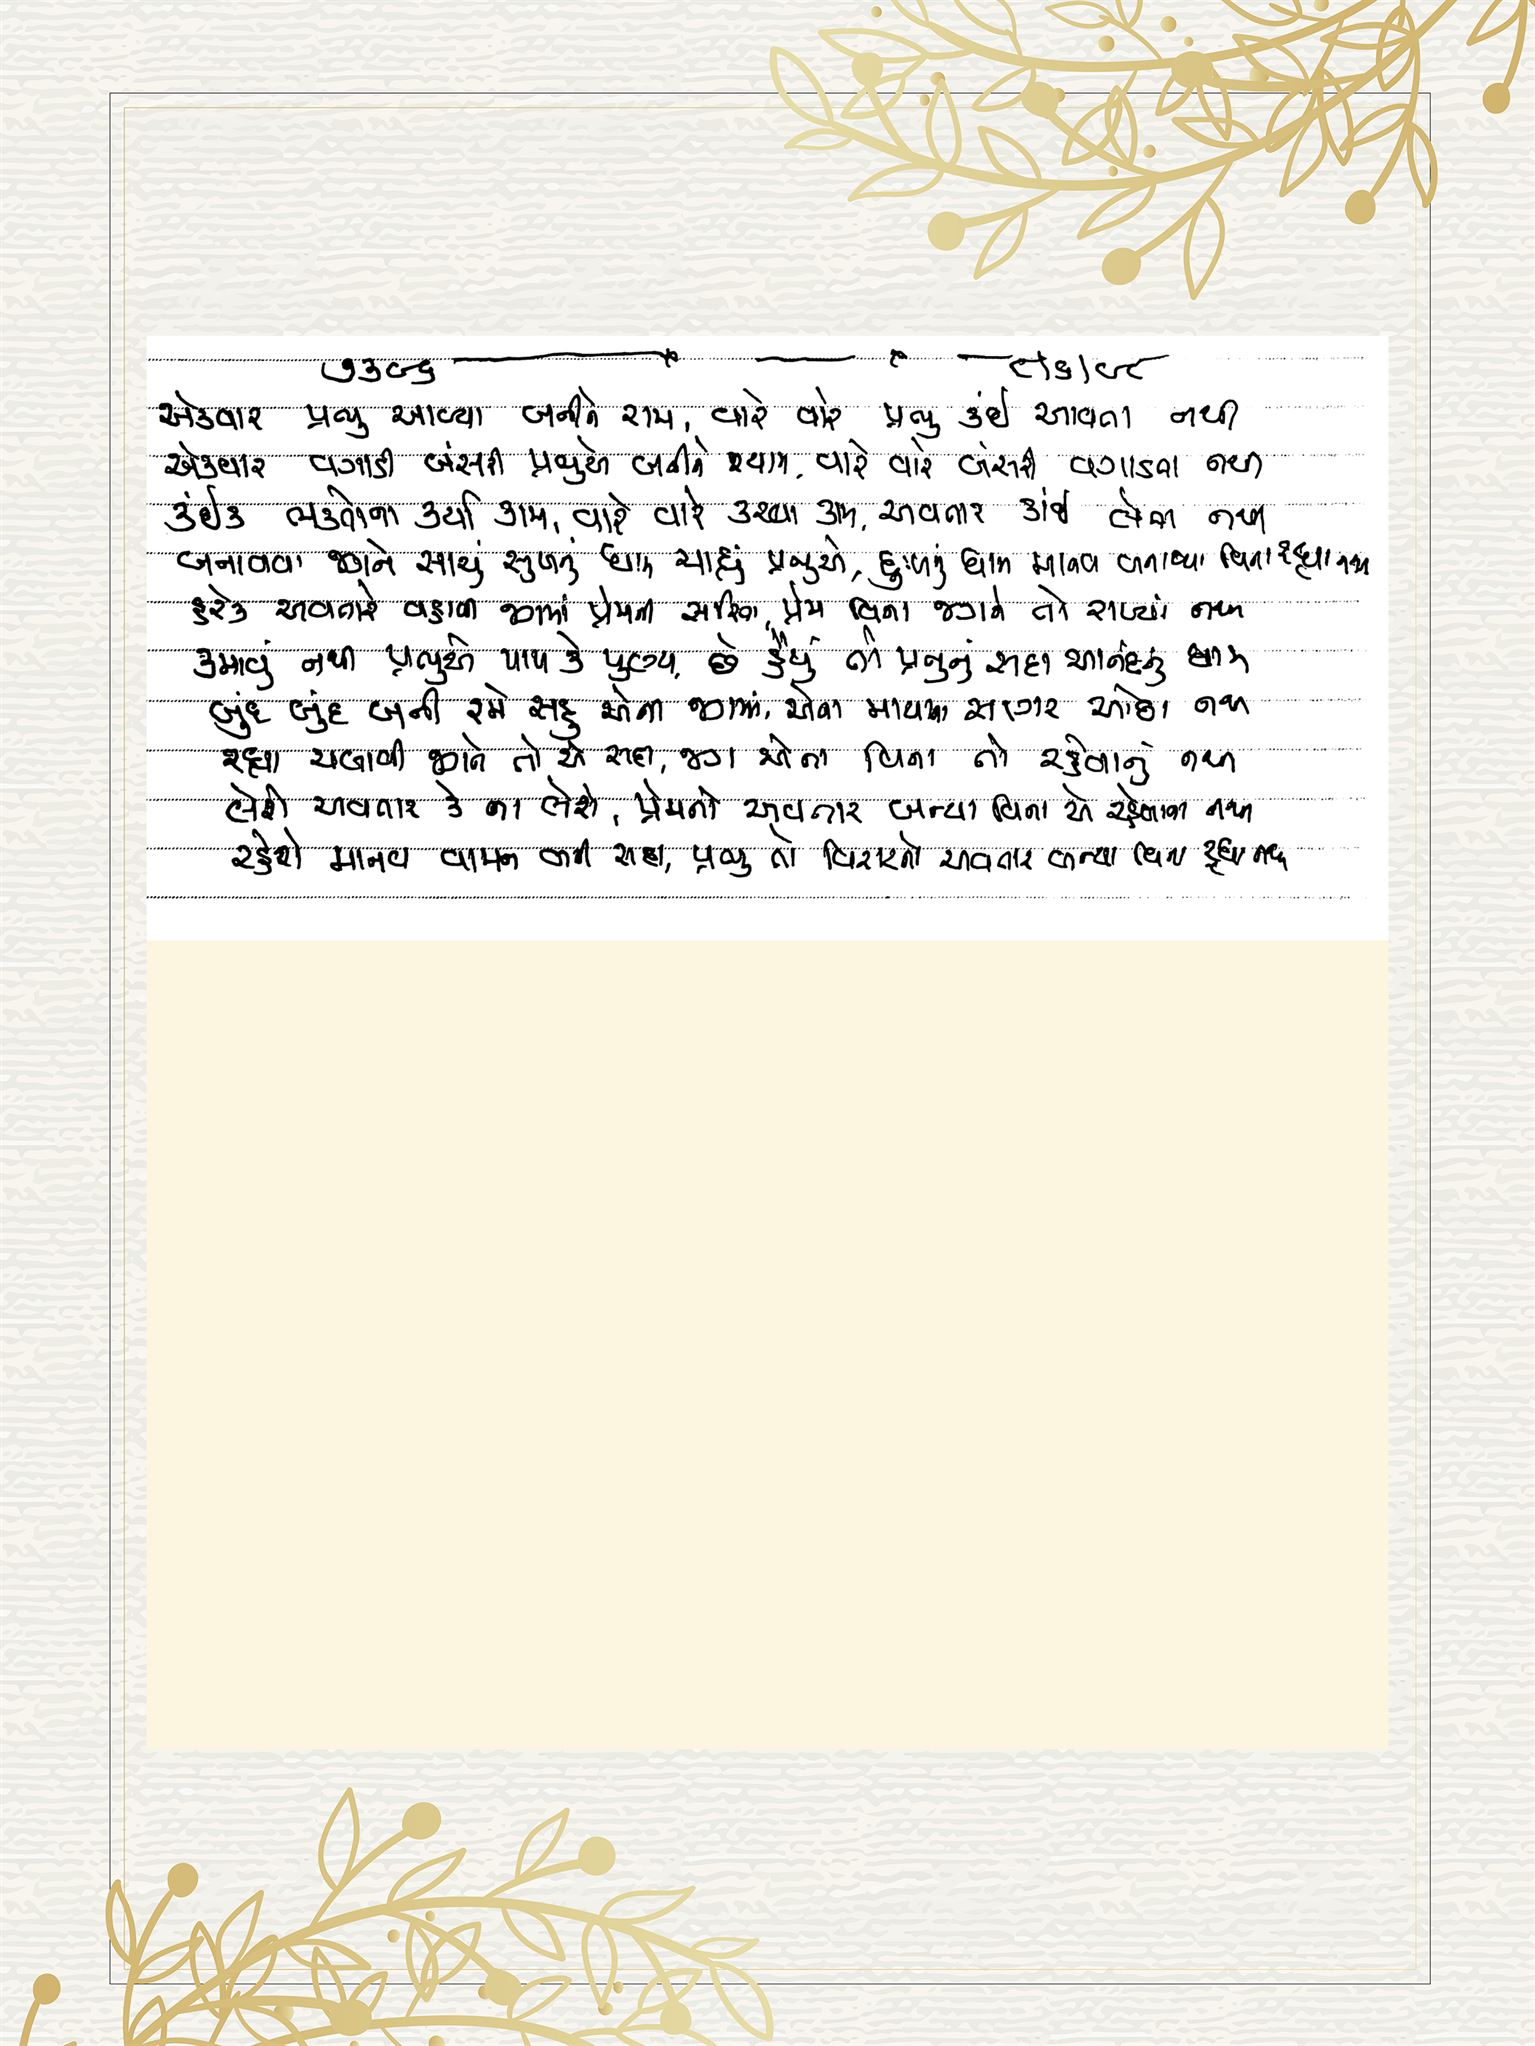 ૭૩૯૬ ૯/૬/૯૮
એકવાર પ્રભુ આવ્યા બનીને રામ, વારે વારે પ્રભુ કંઈ આવતા નથી
એકવાર વગાડી બંસરી પ્રભુએ બનીને શ્યામ, વારે વારે બંસરી વગાડતા નથી
કંઈક ભક્તોના કર્યા કામ, વારે વારે કરવા કામ, અવતાર કાંઈ લેતા નથી
બનાવવા જગને સાચું સુખનું ધામ ચાહ્યું પ્રભુએ, દુઃખનું ધામ માનવ બનાવ્યા વિના રહ્યા નથી
દરેક અવતારે વહાવી જગમાં પ્રેમની સરિતા, પ્રેમ વિના જગને તો રાખ્યાં નથી
કમાવું નથી પ્રભુએ પાપ કે પુણ્ય, છે હૈયું તો પ્રભુનું સદા આનંદનું ધામ
બુંદ બુંદ બની રમે સહુ એના જગમાં, એના માયાના સાગર ઓછા નથી
રહ્યા ચલાવી જગને તો એ સદા, જગ એના વિના તો રહેવાનું નથી
લેશે અવતાર કે ના લેશે, પ્રેમનો અવતાર બન્યા વિના એ રહેવાના નથી
રહેશે માનવ વામન બની સદા, પ્રભુ તો વિરાટનો અવતાર બન્યા વિના રહ્યા નથી